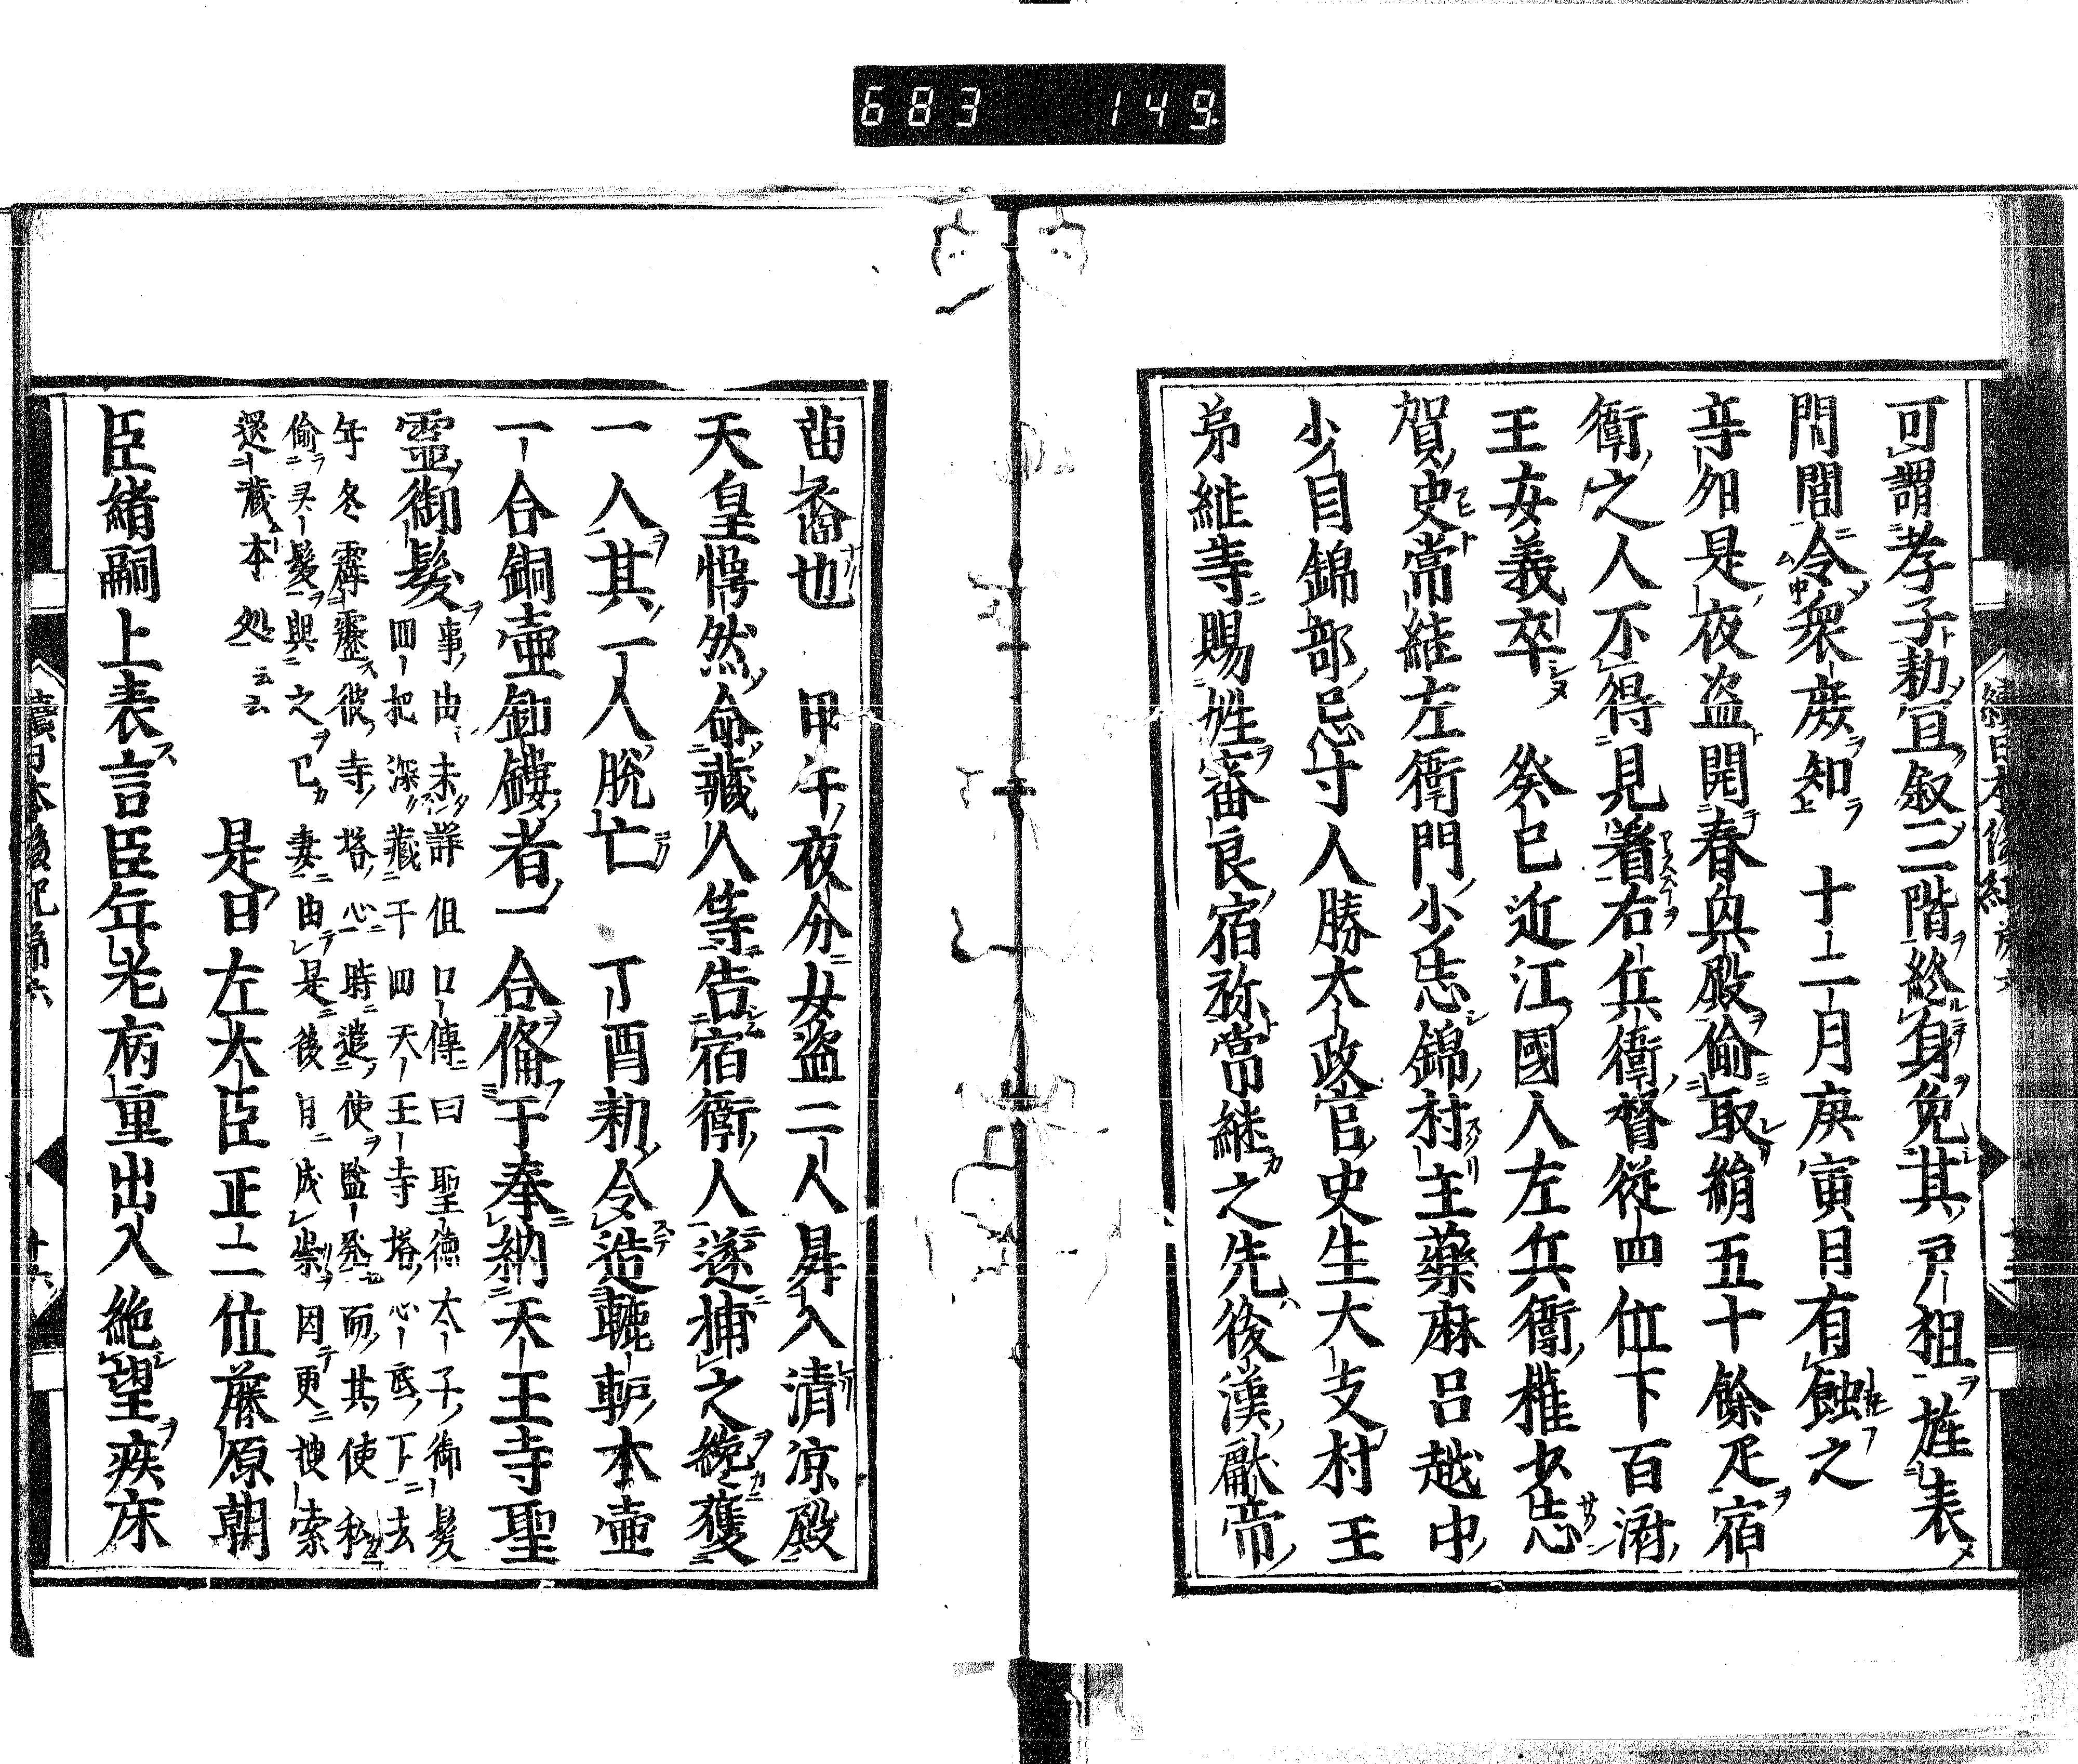 683 149
可謂孝子勅宜叙三階終身免其戸租旌表
門閭令衆庶知 十二月庚寅月有蝕之
辛卯是夜盗開春興殿偷取絹五十餘疋宿
衛之人不得見著右兵衛督從四位下百濟
王女義卒 癸巳近江國人左兵衛權少志
賀史常継左衛門少志錦村主藥麻呂越中
少目錦部忌寸人勝太政官史生大友村主
弟継等賜姓春良宿祢常継之先後漢獻帝
苗裔也 甲午夜分女盗二人昇入清凉殿
天皇愕然命藏人等告宿衛人逐捕之纔獲
一人其一人脱亡 丁酉勅令造轆轤木壺
一合銅壺鉚鏤者一合俻于奉納天王寺聖
靈御髮
事由未詳但口傳曰聖徳太子御髮
四把深藏于四天王寺塔心底下去
年冬霹靂彼寺塔心時遣使監發而其使私
偷其髮與之已妻由是後日成祟因更搜索
還藏本処云云
是日左大臣正二位藤原朝
臣緒嗣上表言臣年老病重出入絶望疾床